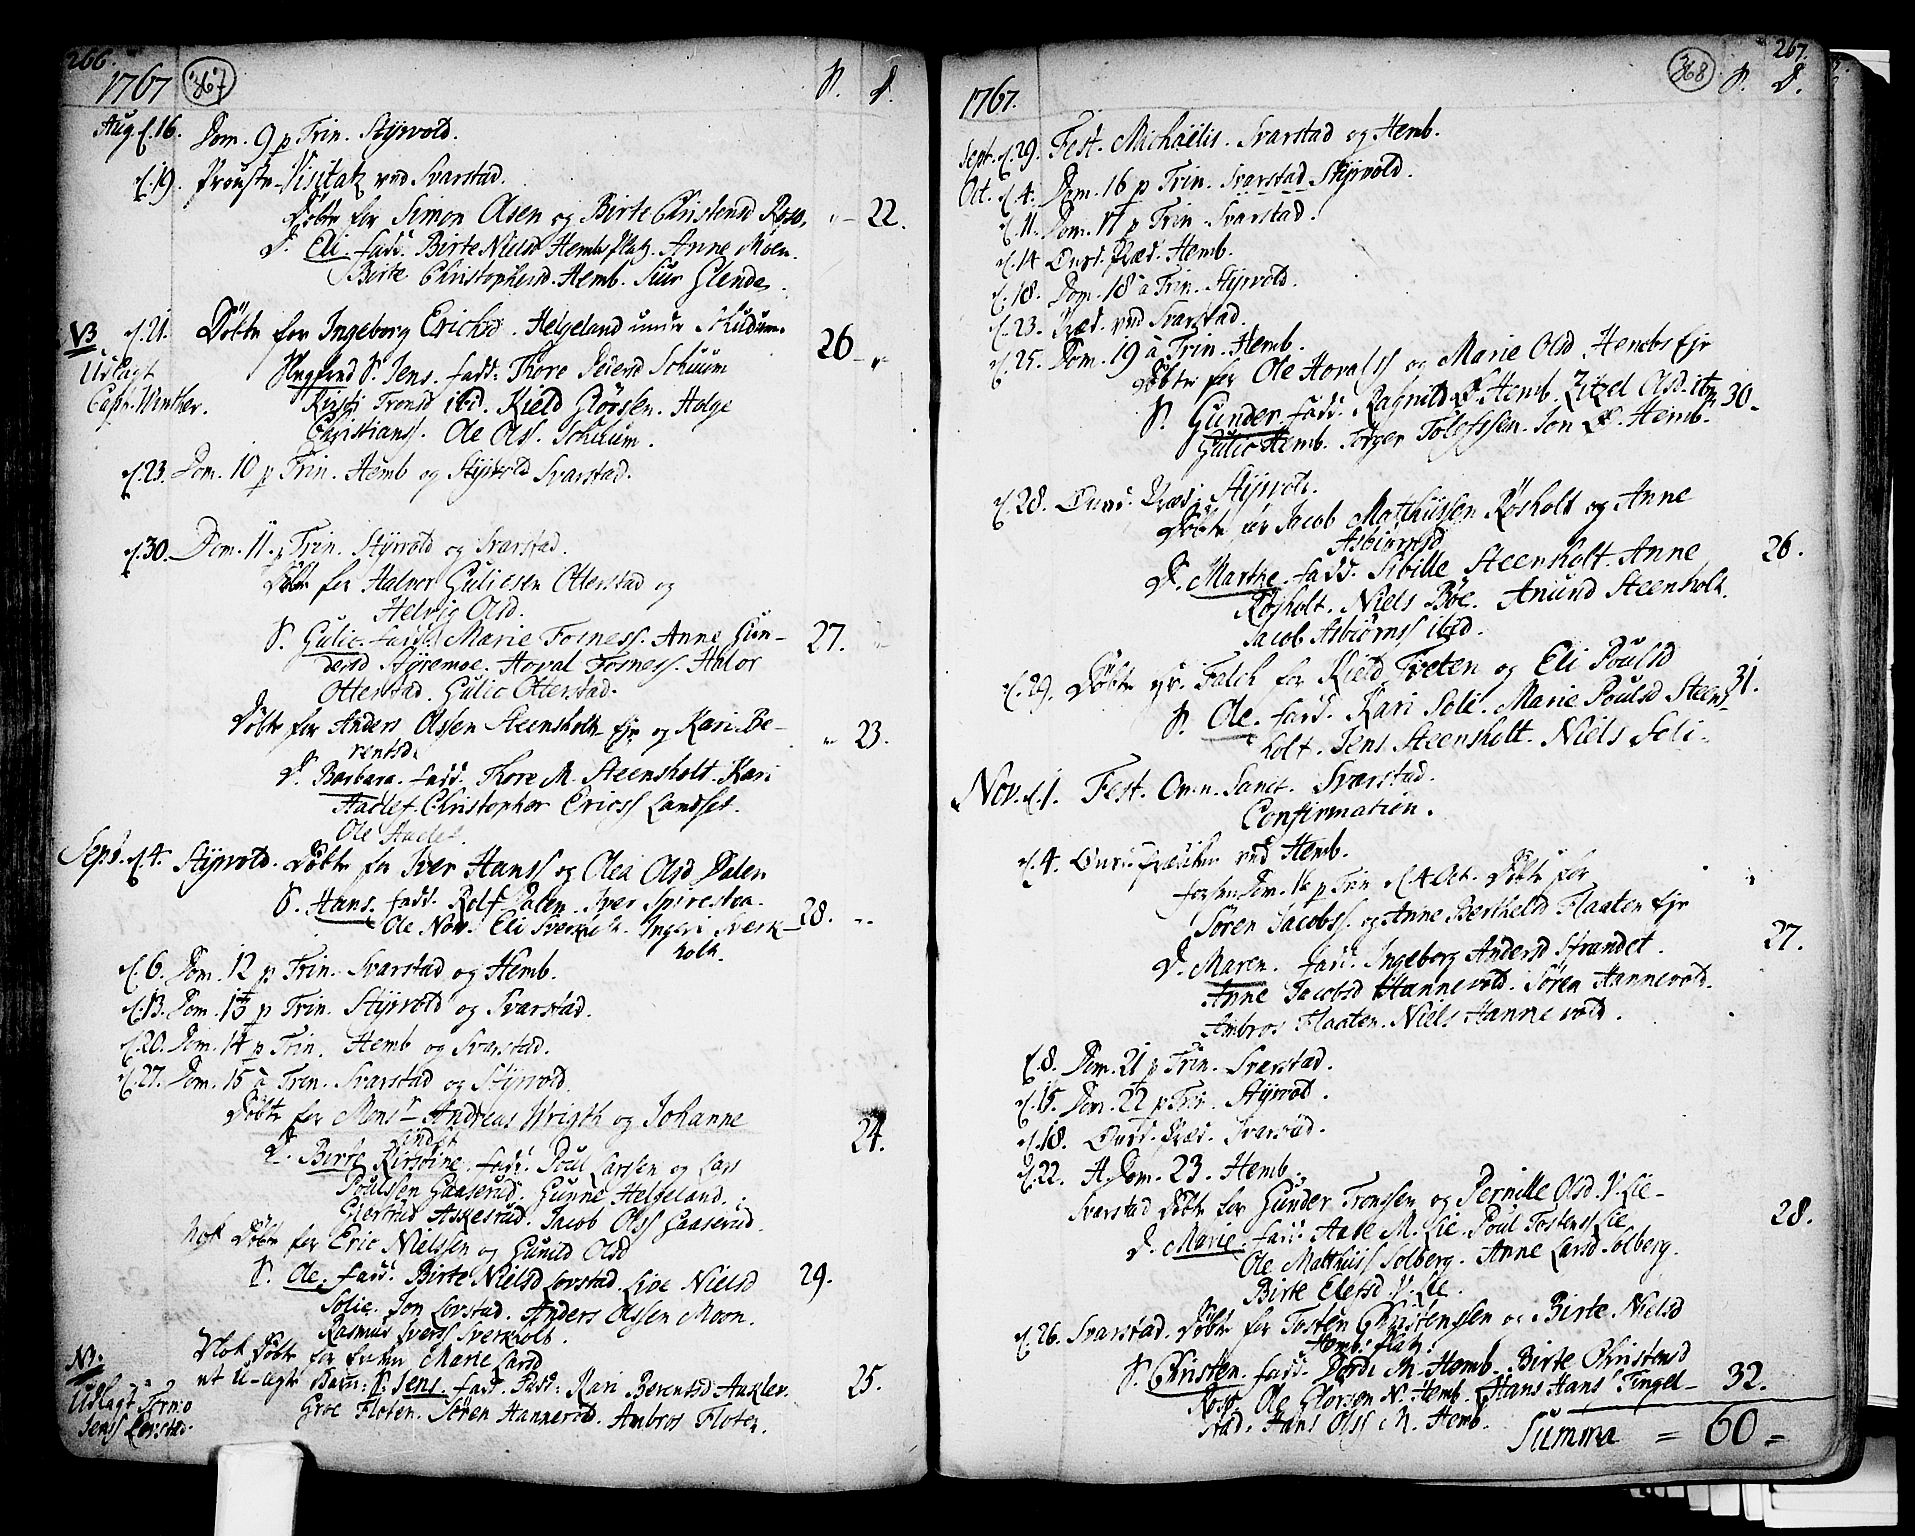 266.
1767 367 S. D.
Aug. d. 16. Dom. 9 p Trin. Styrvold.
d. 19. Prouste-Visitatz ved Svarstad.
Döbte for Simon Olsen og Birte Christensd Roso, 22.
D. Eli. fadd. Birte Nielsd Hembs Platz. Anne Moen.
Birte Christophersd. Hemb. Siur Glende.
NB d. 21. Döbte for Ingeborg Ericksd. Helgeland under
Udlagt S. Jens. fadd: Thore Peiersd Schuum 26
Capt. Winther. Kirsti Tronsd ibid. Kield Glörsen. Holge
Christianss. Ole Olss. Schuum.
d. 23. Dom. 10 p Trin. Hemb og Styrvold Svarstad.
d. 30. Dom. 11. p Trin. Styrvold og Svarstad.
Döbte for Halvor Guliesen Otterstad og
Helvig Olsd.
S. Gulic. fadd. Marie Fosness. Anne Gun- 27.
dersd Styremoe. Horval Fosness. Halvor
Otterstad. Gulic Otterstad.
Döbte for Anders Olssen Steensholt Ejr og Kari Be- 23.
rentsd.
D. Barbara. fadd. Thore M. Steensholt. Kari
Christopher Ericss Landset.
Ole
Sept. d. 4. Styrvold. Döbte for Iver Hanss og Olea Olsd Dalen
S. Hans. fadd. Rolf Dalen. Iver 28.
Ole Eli Sverkholt. Ingeri Sverk-
holt.
d. 6. Dom. 12 p Trin. Svarstad og Hemb.
d. 13. Dom. 13 p Trin. Styrvold og Svarstad.
d. 20. Dom. 14 p Trin. Hemb og Svarstad.
d. 27. Dom. 15 à Trin. Svarstad og Styrvold.
Döbte for Monsr Andreas Wrigth og Johanne
D. Birte Kirstine. fadd. Poul Larssen og Lars 24.
Poulssen Gaaserud. Gunne Helgeland.
Giertrud Askesrud. Jacob Olss Gaaserud.
Nok Döbte for Eric Nielssen og Gunild Olsd
S. Ole. fadd. Birte Nielsd Lovstad. Live Nielsd 29.
Solie. Jon Lovstad. Anders Olssen Moon.
Rasmus Iverss Sverkholt.
NB. Nok Döbte for Marie Larsd
et U-ægte Barn: S. Jens. fadd. Kari Berentsd 25.
Udlagt Groe Floten. Sören Hannevold. Ambros Floten.
Jens Lovstad.
267.
1767. 368 S. D.
Sept. d. 29. Fest. Michaëlis. Svarstad og Hemb.
Oct. d. 4. Dom. 16 p Trin. Svarstad Styrvold.
d. 11. Dom. 17 p Trin. Svarstad.
d. 14 Onsd. Præd. Hemb.
d. 18. Dom. 18 à Trin. Styrvold.
d. 23. Præd. ved Svarstad.
d. 25. Dom. 19 à Trin. Hemb.
Döbte for Ole Horalss og Marie Olsd. Hembs Ejr
S. Gunder. fadd. Ragnild Hemb. Zitzel Olsd. ibm 30.
Gulic Hemb. Torger Tolefssen. Jon Hemb.
d. 28. Onsd. Præd. Styrvold.
Döbte for Jacob Matthiissen Rösholt og Anne
Asbiörnsd
D. Marthe. fadd. Sibille Steenholt. Anne 26.
Rösholt. Niels Böe. Anund Steenholt.
Jacob Asbiörnss ibid.
d. 29. Döbte for Kield Tveten og Eli Poulsd 31.
S. Ole. fadd. Kari Solie. Marie Poulsd Steens-
holt. Jens Steensholt. Niels Soli-
Nov. d. 1. Fest. Omn. Sanct. Svarstad.
Confirmation.
d. 4. ved Hemb.
Dom. 16 p Trin. d. 4 Oct. Döbte for
Sören Jacobss. og Anne Berthelsd Flaaten Ejr 27.
D. Maren. fadd. Ingeborg Andersd Strandet.
Anne Jacobsd Hannevold. Sören Hannevold.
Ambros Flaaten. Niels Hannevold.
d. 8. Dom. 21 p Trin. Svarstad.
d. 15. Dom. 22 p Trin. Styrvold.
d. 18. Onsd. Præd. Svarstad.
d. 22. Dom. 23. Hemb.
Svarstad Döbte for Gunder Tronssen og Pernille Olsd. V. Lie- 28.
D. Marie. fadd. Aase M. Lie. Poul Tostenss Lie
Ole Matthiiss Solberg. Anne Larsd Solberg.
Birte Elefsd. V. Lie.
d. 26. Svarstad. Döbte for Tosten Christenssen og Birte Nielsd
Hembs Platz.
S. Christen. fadd. M. Hemb. Birte Christensd 32.
Roso. Ole Glorson N. Hemb. Hans Hanss Tingel-
stad. Hans Olss M. Hemb.
Summa = 60 =